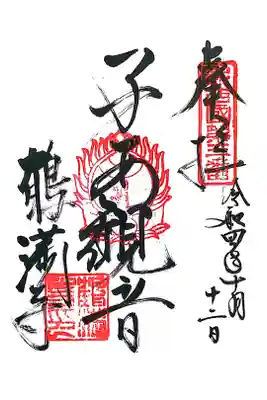 奉拝
令和四年十月
十二日
子安観音
鶴満寺